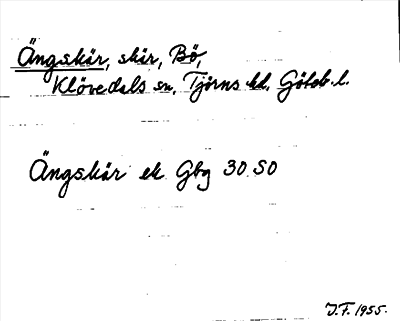 Ängskär, skär, Bö,
Klövedals sn, Tjörns hd, Göteb. l.
Ängskär ek Gbg 30 SO
J.F. 1955.